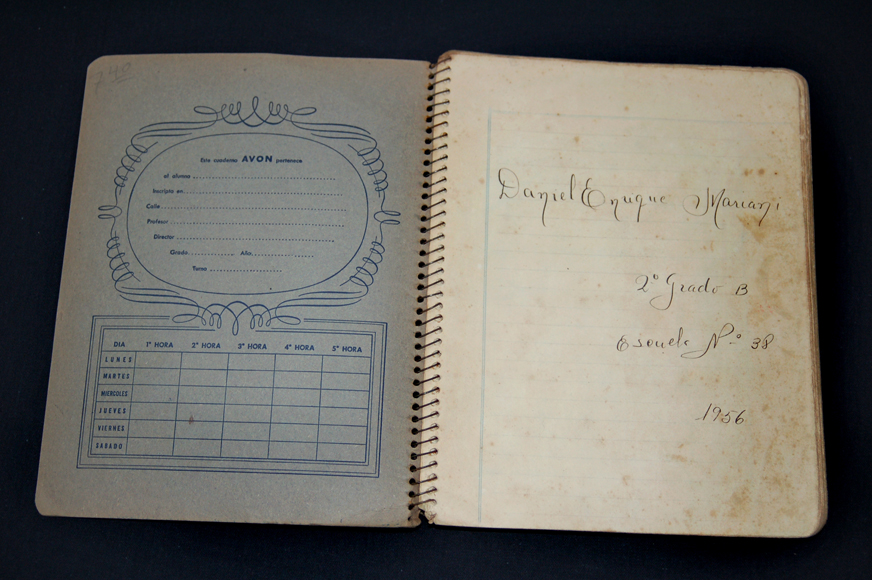 240
Este cuaderno AVON pertenece
al alumno
Inscripto en
Calle
Profesor
Director
Grado Año
Turno
DIA 1ª HORA 2ª HORA 3ª HORA 4ª HORA 5ª HORA
LUNES
MARTUS
MIERCOLES
JUEVES
VIERNES
SABADO
Daniel Enrique Mariani
2º Grado B
Escuela Nº 38
1956